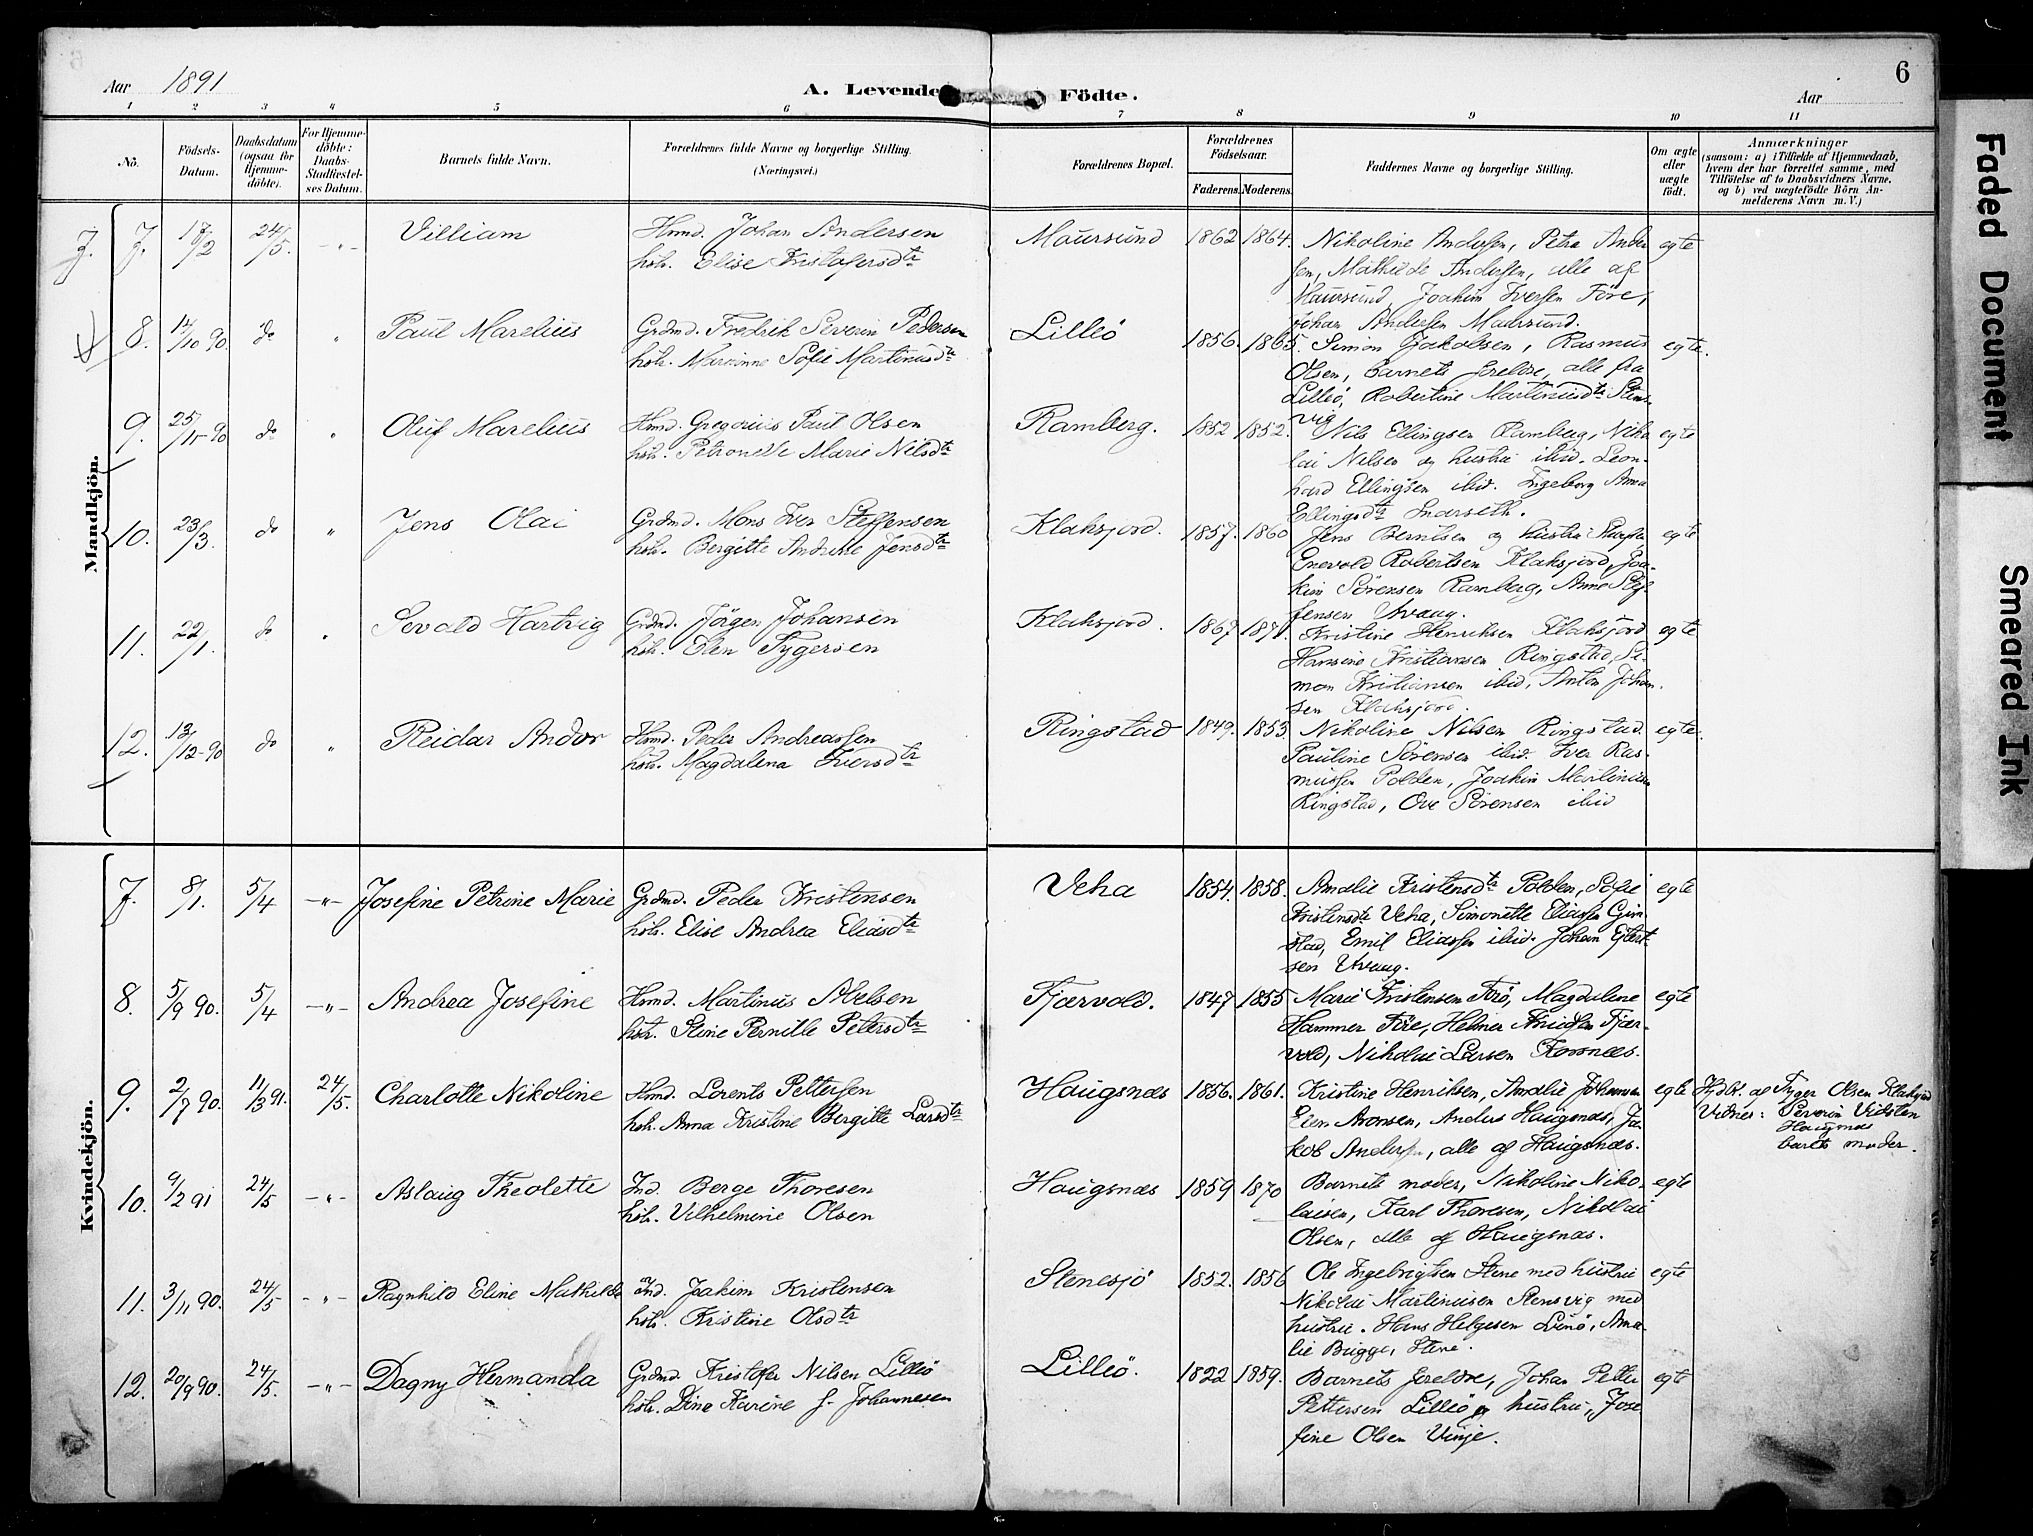 6
Aar 1891
A. Levende Födte.
Aar
1 2 3 4 5 6 7 8 9 10 11
No.
Födsels-Datum.
Daabsdatum (ogsaa for Hjemme-döbte).
For Hjemme-döbte: Daabs-Stadfæstel-ses Datum.
Barnets fulde Navn.
Forældrenes fulde Navne og borgerlige Stilling. (Næringsvei.)
Forældrenes Bopæl.
Forældrenes Födselsaar.
Faderens. Moderens.
Faddernes Navne og borgerlige Stilling.
Om ægte eller uægte födt.
Anmærkninger
(saasom: a) i Tilfælde af Hjemmedaab, hvem der har forrettet samme, med Tilföielse af to Daabsvidners Navne, og b) ved uegtefödte Börn An-melderens Navn m. V.)
Mandkjön.
7. 7. 17/2 24/5. -"- Villiam
Hmd. Johan Andersen
hstr. Elise Kristofersdtr
Maursund 1862 1864.
Nikoline Andersen, Petra Ander
sen, Mathilde Andersen, alle af
Maursund, Joakim Iversen Före,
Johan Andersen Maursund.
egte
8. 14/10 90. do " Paul Marelius
Grdmd. Fredrik Severin Pedersen
hstr. Marianne Sofie Martinusdtr
Lilleö 1856. 1865.
Simon Jakobsen, Rasmus
Olsen, barnets foreldre, alle fra
Lilleö, Robertine Martinusdtr Stens-
vig
egte.
9. 25/11-90 do " Oluf Marelius
Hmd. Gregorius Paul Olsen
hstr. Petronelle Marie Nilsdtr
Ramberg. 1852 1852.
Nils Ellingsen Ramberg, Niko
lai Nilsen og hustru ibid. Leon-
hard Ellingsen ibid. Ingeborg Anna
Ellingsdtr
egte
10. 23/3. do " Jens Olai
Grdmd. Mons Iver Steffensen
hstr. Bergitte Andrine Jensdtr
Klaksjord. 1857. 1860
Jens Berntsen og hustru
Enevold Robertsen Klaksjord, Joa-
kim Sörensen Ramberg, Anne Stef-
fensen Uvaag.
egte
11. 22/1. do " Sevald Hartvig
Grdmd. Jörgen Johansen
hstr. Elen Tygersen
Klaksjord. 1867 1871.
Kristine Henriksen Klaksjord
Hansine Kristiansen Ringstad, Si-
mon Kristiansen ibid, Anton Johan-
sen Klaksjord.
egte
12. 13/12-90 do " Reidar Andor
Hmd. Peder Andreassen
hstr. Magdalena Iversdtr
Ringstad 1849. 1853.
Nikoline Nilsen Ringstad.
Pauline Sörensen ibid. Iver Ras-
mussen Polden, Joakim Martinusen
Ringstad, Ove Sörensen ibid
egte.
Kvindekjön.
7. 8/1. 5/4 -"- Josefine Petrine Marie
Grdmd. Peder Kristensen
hstr. Elise Andrea Eliasdtr
Veha 1854. 1858.
Amalie Kristensdtr Polden, Sofie
Kristensdtr Veha, Simonette Eliassen Grim
stad, Emil Eliassen ibid. Johan Ejlert-
sen Uvaag.
egte
8. 5/9 90. 5/4 -"- Andrea Josefine
Hmd. Martinus Abelsen
hstr. Stine Pernille Petersdtr
Fjærvold. 1847 1855
Marie Kristensen Förö, Magdalene
Hammer Före, Helmer Knudsen Fjær-
vold, Nikolai Larsen Kornnæs.
egte
9. 2/7 90. 11/3 91. 24/5. Charlotte Nikoline
Hmd. Lorents Pettersen
hstr. Anna Kristine Bergitte Larsdtr
Haugsnæs 1856. 1861.
Kristine Henriksen, Amalie Johansen
Elen Aronsen, Anders Haugsnæs, Ja-
kob Andersen, alle af Haugsnæs.
egte
Hjdbt. af Tyger Olsen Klaksjord
Vidner: Severin Vidsten
Haugsnæs
barnets moder.
10. 9/2 91 24/5 -"- Aslaug Theolette
Ind. Berge Thoresen
hstr. Vilhelmine Olsen
Haugsnæs 1859 1870
Barnets moder, Nikoline Niko-
laisen, Karl Thoresen, Nikolai
Olsen, alle af Haugsnæs.
egte
11. 3/11 90. 24/5 -"- Ragnhild Eline Mathilde
Ind. Joakim Kristensen
hstr. Kristine Olsdtr
Stenesjö 1852. 1856
Ole Ingebrigtsen Stene med hustru
Nikolai Martinusen Stensvig med
hustru. Hans Helgesen Linö, Ama-
lie Brigge, Stene.
egte
12. 20/9 90. 24/5. -"- Dagny Hermanda
Grdmd Kristofer Nilsen Lilleö
hstr. Dina Karine f. Johannesen
Lilleö. 1822 1859.
Barnets foreldre, Johan Petter
Pettersen Lilleö og hustru, Jose
fine Olsen Vinje.
egte
Faded Document
Smeared Ink